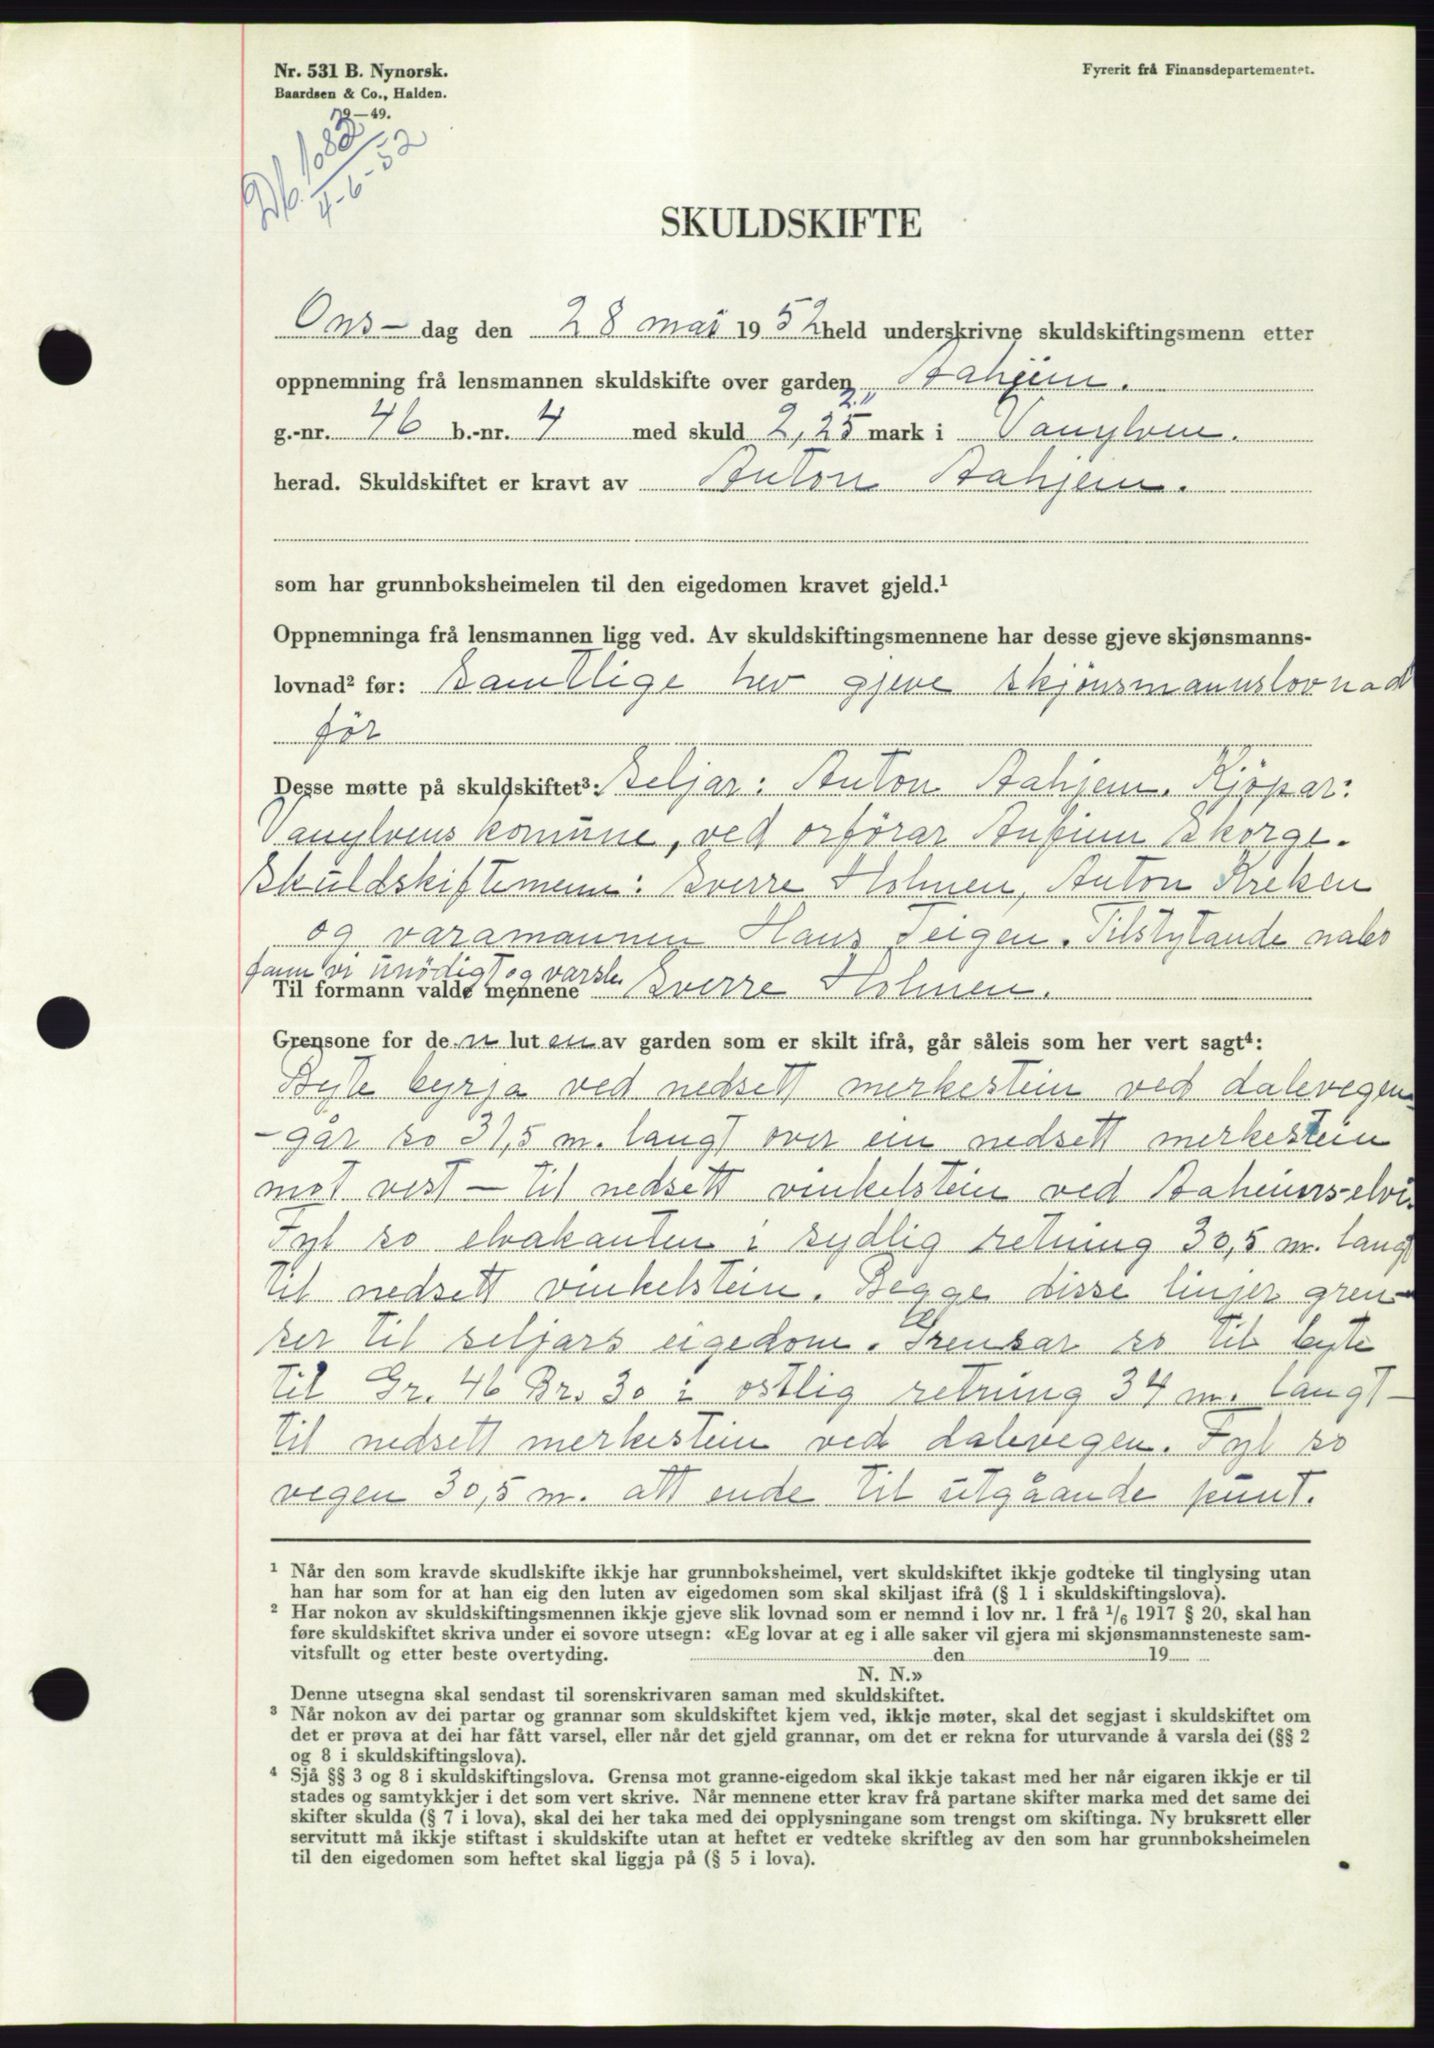 Nr. 531 B. Nynorsk.
Baardsen & Co., Halden.
Fyrerit frå Finansdepartementet.
9—49.
Db. 1082
4-6-52
SKULDSKIFTE
Ons- dag den 28 mai 1952 held underskrivne skuldskiftingsmenn etter
oppnemning frå lensmannen skuldskifte over garden Aaheim.
g.-nr. 46 b.-nr. 4 med skuld 2,25 mark i Vanylven.
herad. Skuldskiftet er kravt av Anton Aahjem.
som har grunnboksheimelen til den eigedomen kravet gjeld.¹
Oppnemninga frå lensmannen ligg ved. Av skuldskiftingsmennene har desse gjeve skjønsmanns-
lovnad² før: Samtlige hev gjeve skjönsmannslovnad
för
Desse møtte på skuldskiftet³: Seljar: Anton Aahjem. Kjöpar:
Vanylvens komune, ved orförar Anfinn Skorge.
Skuldskiftemenn: Sverre Holmen, Anton Kreken
og varamannen Hans Teigen. Tilstytande nabo
fann vi unödigt og varsle
Til formann valde mennene Sverre Holmen.
Grensone for den luten av garden som er skilt ifrå, går såleis som her vert sagt⁴:
Byte byrja ved nedsett merkestein ved dalevegen-
- går so 31,5 m. langt over ein nedsett merkestein
mot vest - til nedsett vinkelstein ved Aaheims-elvi.
Fyl so elvakanten i sydlig retning 30,5 m. langt
til nedsett vinkelstein. Begge disse linjer gren-
ser til seljars eigedom. Grensar so til byte
til Gr. 46 Br. 30 i ostlig retning 34 m. langt -
til nedsett merkestein ved dalevegen. Fyl so
vegen 30,5 m. att ende til utgåande punt.
¹ Når den som kravde skudlskifte ikkje har grunnboksheimel, vert skuldskiftet ikkje godteke til tinglysing utan
han har som for at han eig den luten av eigedomen som skal skiljast ifrå (§ 1 i skuldskiftingslova).
² Har nokon av skuldskiftingsmennen ikkje gjeve slik lovnad som er nemnd i lov nr. 1 frå ¹/₆ 1917 § 20, skal han
føre skuldskiftet skriva under ei sovore utsegn: «Eg lovar at eg i alle saker vil gjera mi skjønsmannsteneste sam-
vitsfullt og etter beste overtyding. den 19
N. N.»
Denne utsegna skal sendast til sorenskrivaren saman med skuldskiftet.
³ Når nokon av dei partar og grannar som skuldskiftet kjem ved, ikkje møter, skal det segjast i skuldskiftet om
det er prøva at dei har fått varsel, eller når det gjeld grannar, om det er rekna for uturvande å varsla dei (§§ 2
og 8 i skuldskiftingslova).
⁴ Sjå §§ 3 og 8 i skuldskiftingslova. Grensa mot granne-eigedom skal ikkje takast med her når eigaren ikkje er til
stades og samtykkjer i det som vert skrive. Når mennene etter krav frå partane skifter marka med det same dei
skifter skulda (§ 7 i lova), skal dei her taka med dei opplysningane som trengst om skiftinga. Ny bruksrett eller
servitutt må ikkje stiftast i skuldskifte utan at heftet er vedteke skriftleg av den som har grunnboksheimelen
til den eigedomen som heftet skal liggja på (§ 5 i lova).